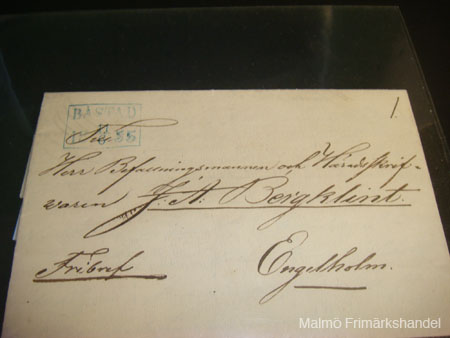 BÅSTAD
1855
1.
Till
Herr Befallningsmannen och Häradsskrif-
waren J. A. Bergklint.
Fribref
Engelholm.
Malmö Frimärkshandel